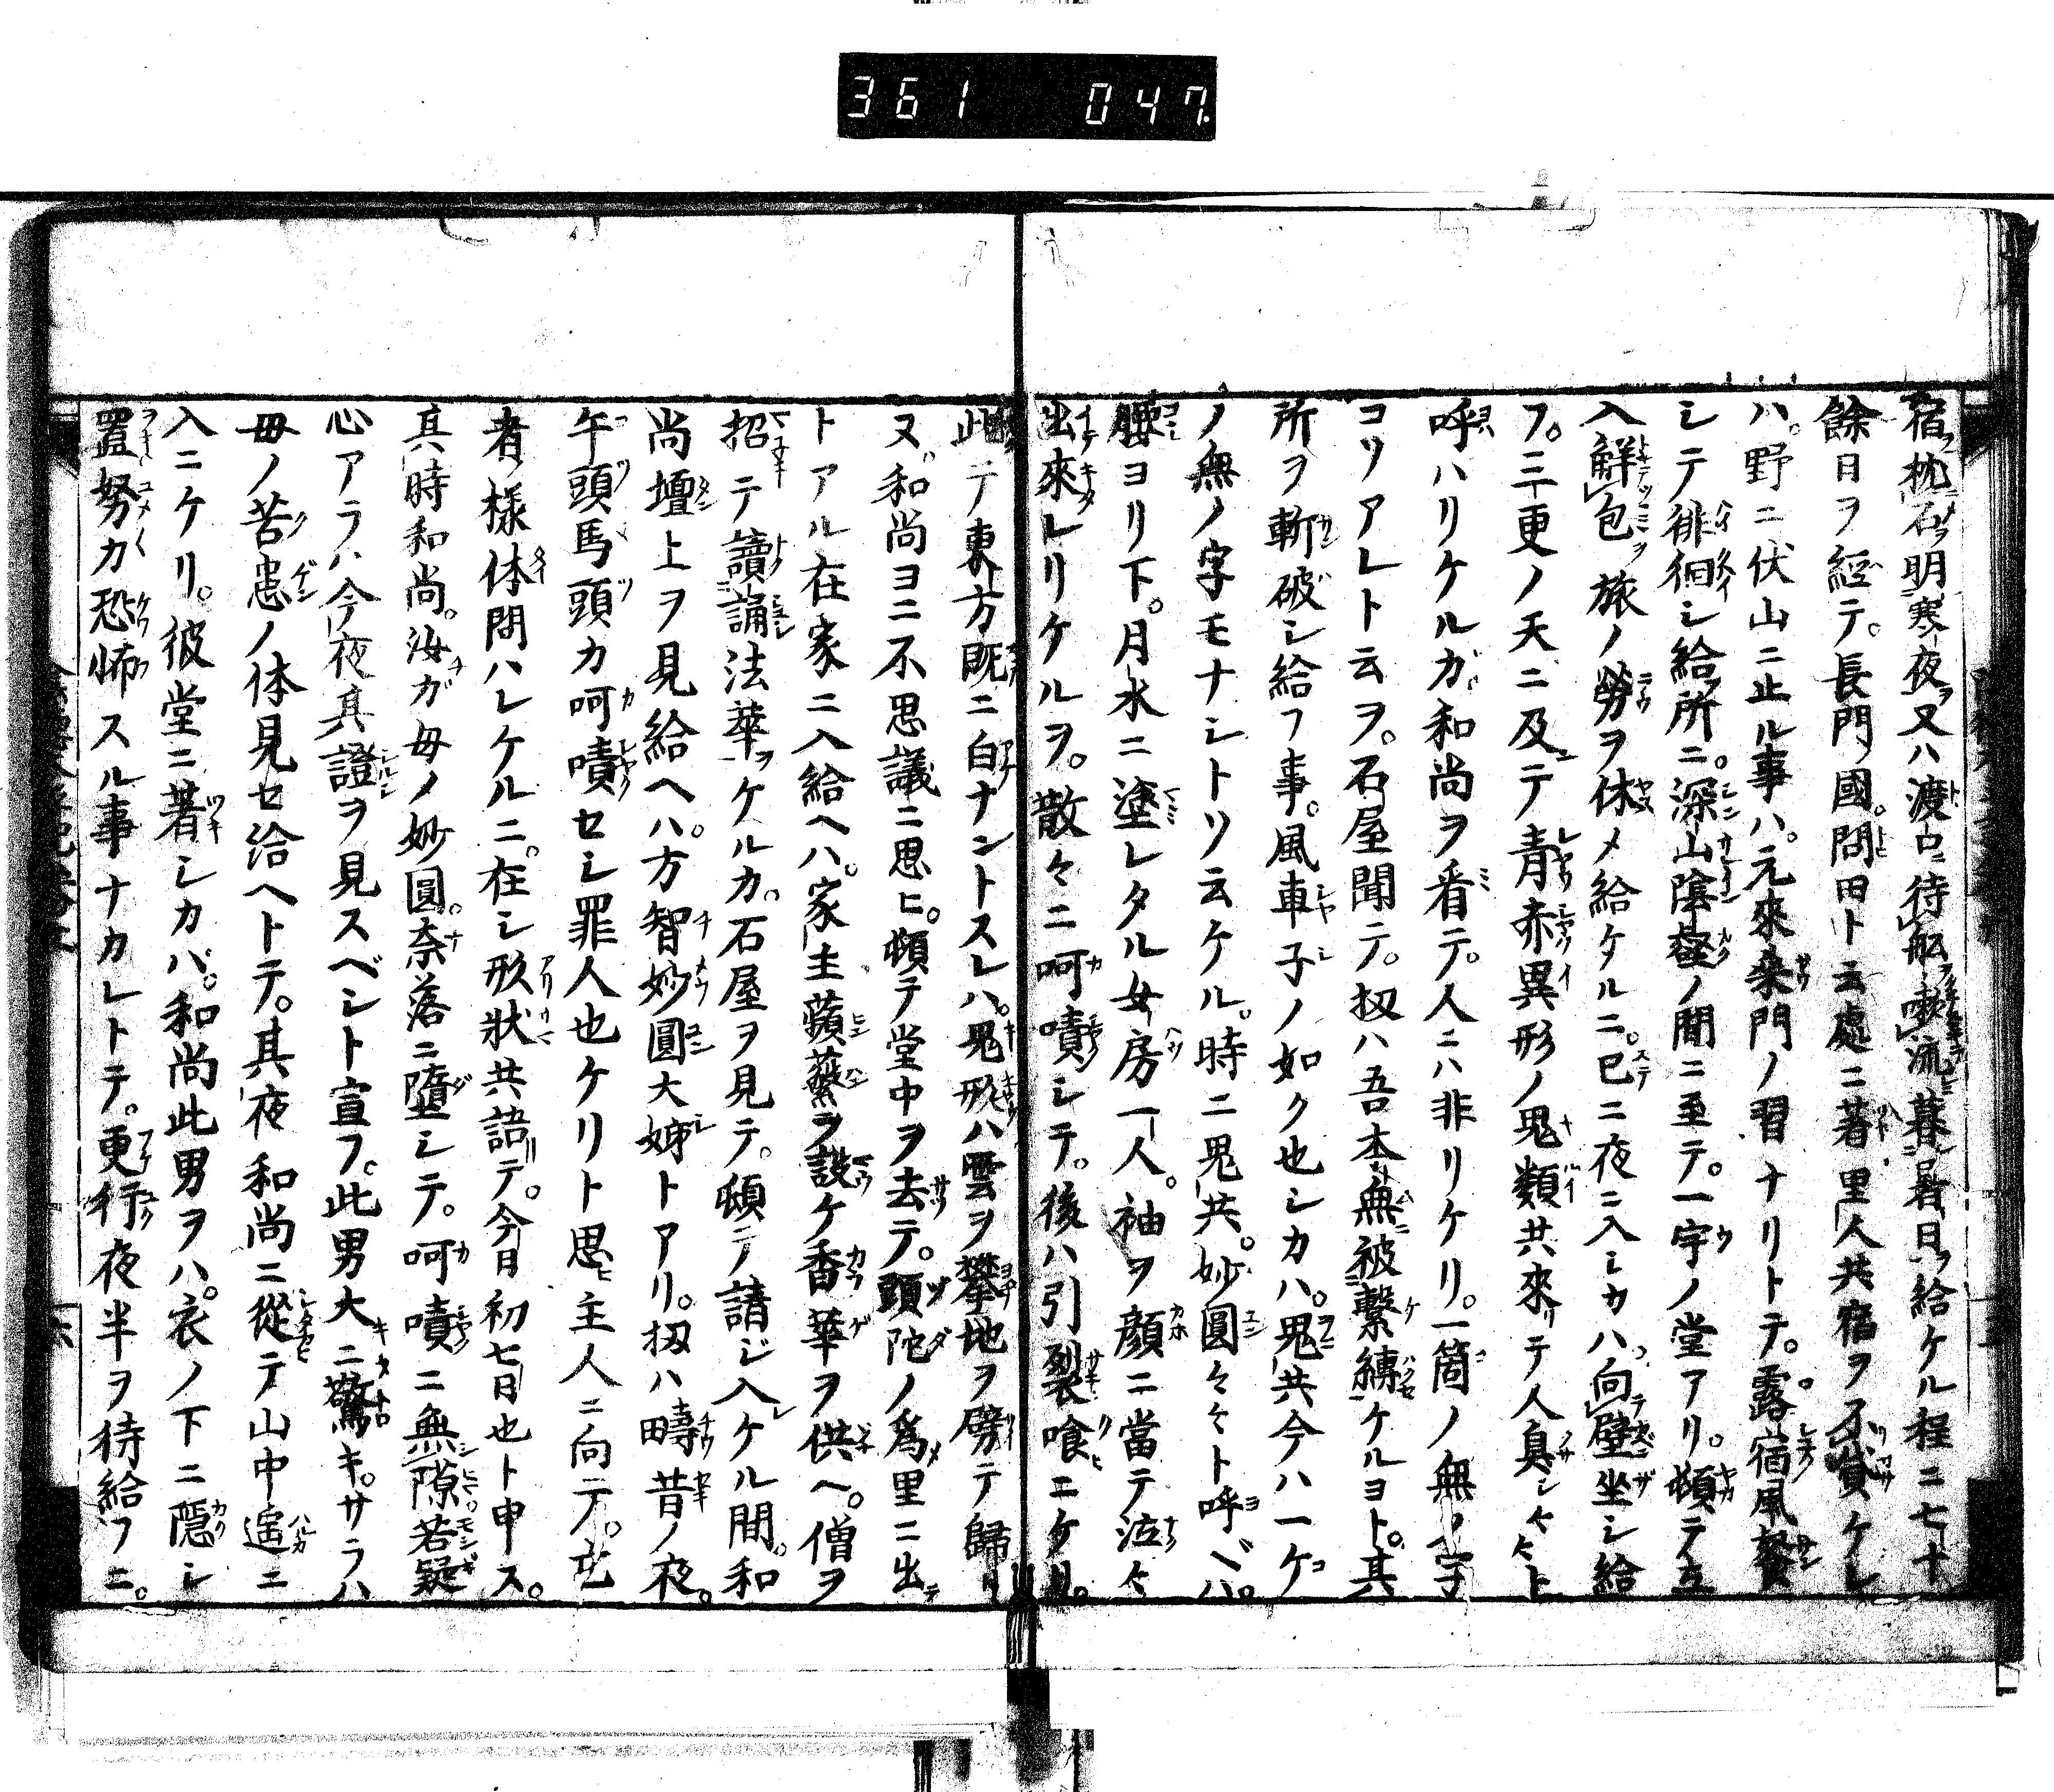 361 047
宿枕石明寒夜ヲ又ハ渡口ニ待舩嗽流暮暑日ヲ給ケル程ニ七十
餘日ヲ經テ。長門ノ國。問田ト云處ニ著里人共宿ヲ不貸ケレ
ハ。野ニ伏山ニ止ル事ハ。元來桒門ノ習ナリトテ。露宿風飡
シテ徘徊シ給所ニ。深山陰壑ノ間ニ至テ。一宇ノ堂アリ。頓テ立
入解包旅ノ勞ヲ休メ給ケルニ。已ニ夜ニ入シカハ向壁坐シ給
フ。三更ノ天ニ及テ青赤異形ノ鬼類共來リテ人臭シ々々ト
呼ハリケルガ。和尚ヲ看テ。人ニハ非リケリ。一箇ノ無ノ字
コソアレト云ヲ。石屋聞テ。扨ハ吾本無被繫縛ケルヨト。其
所ヲ斬破シ給フ事。風車子ノ如ク也シカハ。鬼共今ハ一ケ
ノ無ノ字モナシトソ云ケル。時ニ鬼共。妙圓々々ト呼ベハ。
腰ヨリ下。月水ニ塗レタル女房一人。袖ヲ顔ニ當テ泣々
出來レリケルヲ。散々ニ呵嘖シテ。後ハ引裂喰ニケリ。
此テ東方既ニ白ナントスレハ。鬼形ハ雲ヲ攀地ヲ劈テ歸リ
ヌ。和尚ヨニ不思議ニ思ヒ。頓テ堂中ヲ去テ。頭陀ノ爲里ニ出テ
トアル在家ニ入給ヘハ。家主蘋蘩ヲ設ケ香華ヲ供ヘ。僧ヲ
招テ讀誦法華ヲケルカ。石屋ヲ見テ。頓テ請ジ入ケル間。和
尚壇上ヲ見給ヘハ。方智妙圓大姊トアリ。扨ハ疇昔ノ夜。
牛頭馬頭カ呵嘖セシ罪人也ケリト思ヒ主人ニ向テ。亡
者ノ樣体問ハレケルニ。在シ形狀共語テ。今日初七日也ト申ス。
其時和尚。汝ガ母ノ妙圓。奈落ニ墮シテ。呵嘖ニ無隙。若疑
心アラハ今夜其證ヲ見スベシト宣フ。此男大ニ驚キ。サラハ
母ノ苦患ノ体見セ給ヘトテ。其夜和尚ニ從テ山中遙ニ
入ニケリ。彼堂ニ著シカバ。和尚此男ヲハ。衣ノ下ニ隱シ
置努カ恐怖スル事ナカレトテ。更行夜半ヲ待給フニ。